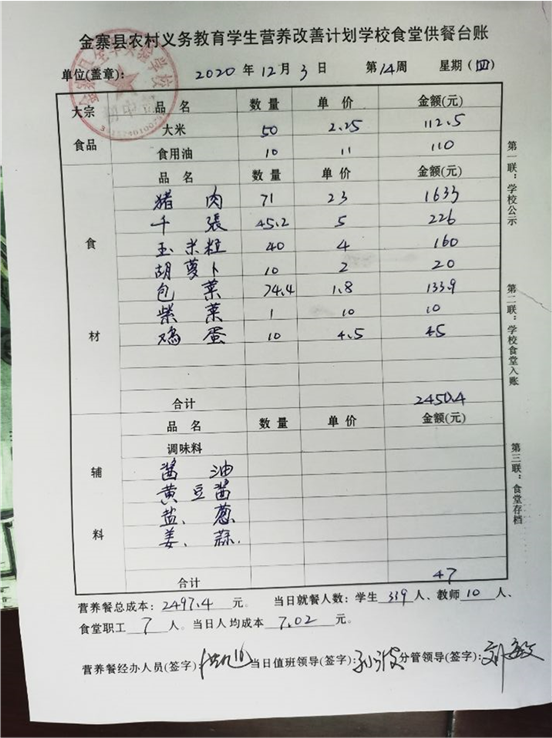 金寨县农村义务教育学生营养改善计划学校食堂供餐台账
单位(盖章): 2020 年 12 月 3 日 第 14 周 星期 (四)
大宗食品 品 名 数 量 单 价 金额(元)
大米 50 2.25 112.5
食用油 10 11 110
食材 品 名 数 量 单 价 金额(元)
猪 肉 71 23 1633
千 張 45.2 5 226
玉米粒 40 4 160
胡萝卜 10 2 20
包 菜 74.4 1.8 133.9
柴 菜 1 10 10
鸡 蛋 10 4.5 45
合计 2450.4
辅料 品 名 数 量 单 价 金额(元)
调味料
酱 油
黄豆酱
盐、葱
姜、蒜.
合计 47
营养餐总成本: 2497.4 元。 当日就餐人数: 学生 339 人、教师 10 人、
食堂职工 7 人。当日人均成本 7.02 元。
营养餐经办人员(签字): 当日值班领导(签字): 分管领导(签字):
第一联:学校公示
第二联:学校食堂入账
第三联:食堂存档